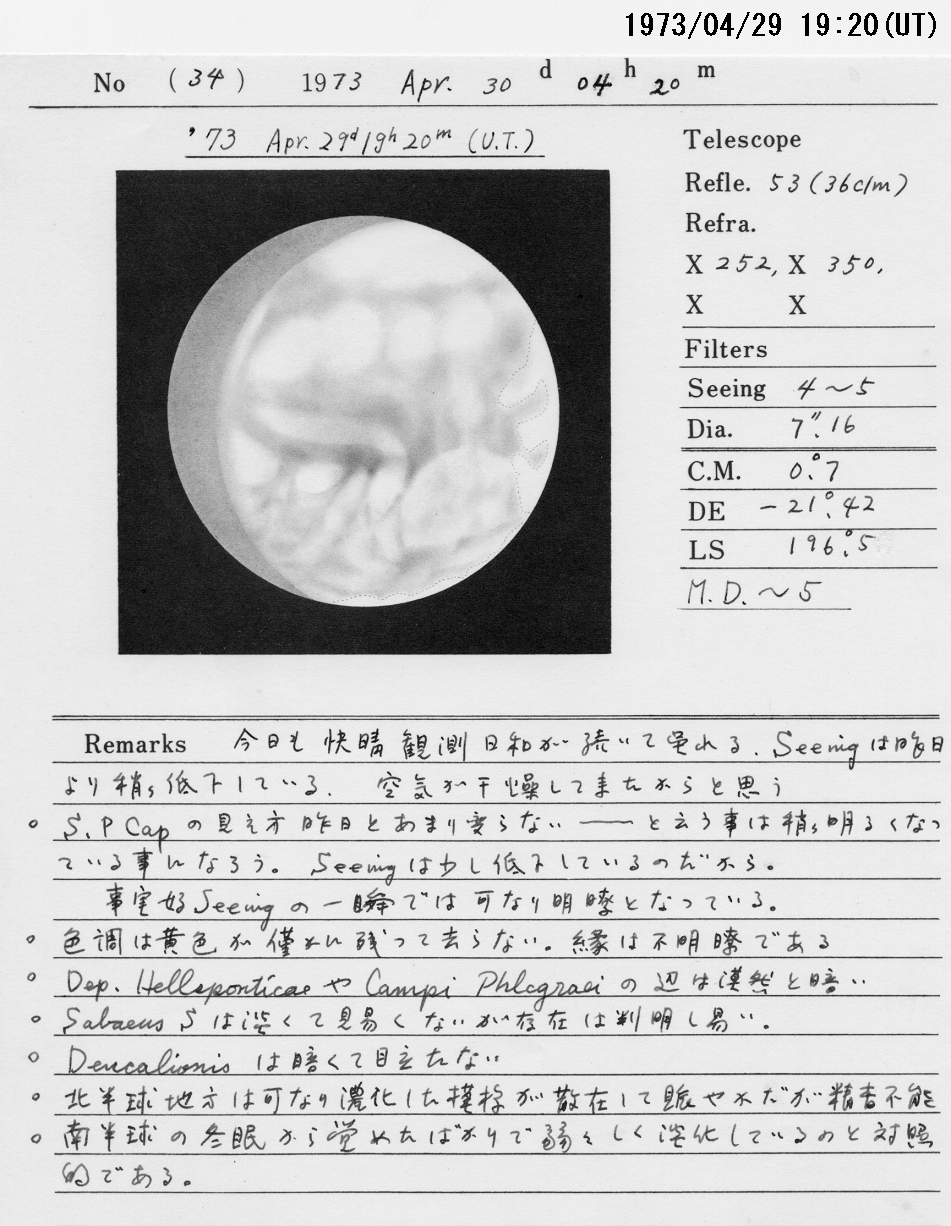 1973/04/29 19:20(UT)
No (34) 1973 Apr. 30 d 04 h 20 m
'73 Apr. 29d 19h 20m (U.T.)
Telescope
Refle. 53 (36c/m)
Refra.
X 252, X 350,
X X
Filters
Seeing 4～5
Dia. 7".16
C.M. 0°.7
DE －21°.42
LS 196°.5
M.D.～5
Remarks 今日も快晴 観測日和が続いて呉れる. Seeingは昨日
より稍々低下している. 空気が干燥して来たからと思う
o S.P Capの見え方昨日とあまり変らない ―― と云う事は稍々明るくなっ
ている事になろう。 Seeingは少し低下しているのだから。
事実好Seeingの一瞬では可なり明瞭となっている。
o 色調は黄色が僅かに残って去らない。縁は不明瞭である
o Dep. Hellesponticae や Campi Phlegraei の辺は漠然と暗い
o Sabaeus S は淡くて見易くないが存在は判明し易い。
o Deucalionis は暗くて目立たない
o 北半球地方は可なり濃化した模様が散在して賑やかだが精査不能
o 南半球の冬眠から覚めたばかりで弱々しく淡化しているのと対照
的である。